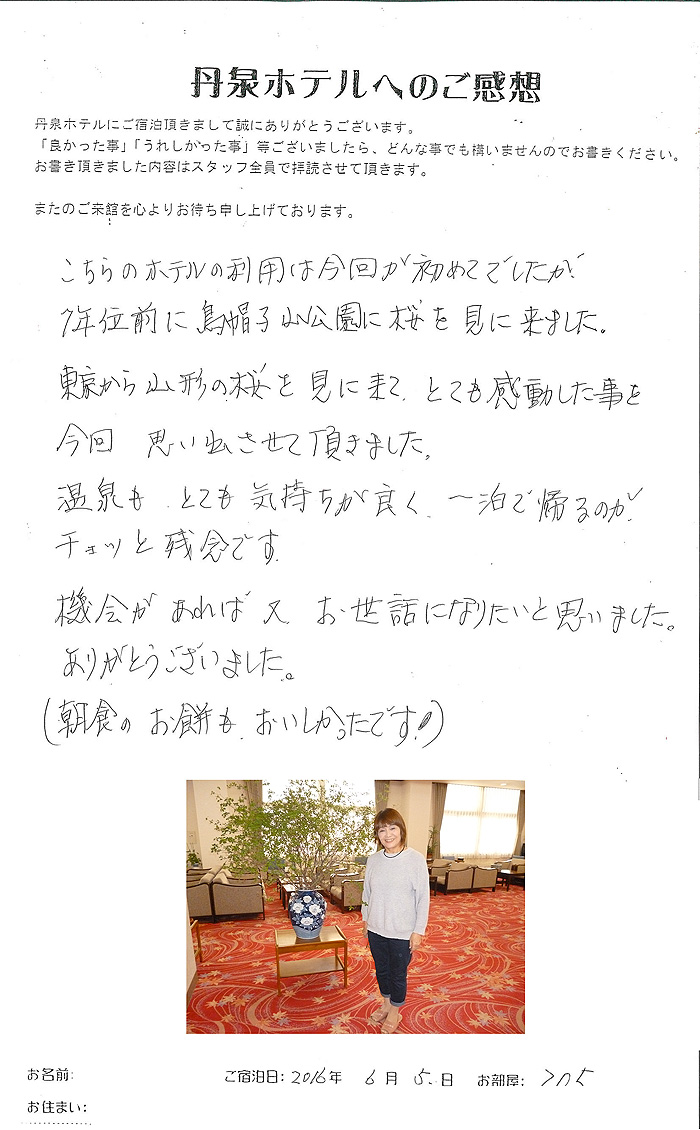 丹泉ホテルへのご感想
丹泉ホテルにご宿泊頂きまして誠にありがとうございます。
「良かった事」「うれしかった事」等ございましたら、どんな事でも構いませんのでお書きください。
お書き頂きました内容はスタッフ全員で拝読させて頂きます。
またのご来館を心よりお待ち申し上げております。
こちらのホテルの利用は今回が初めてでしたが
7年位前に烏帽子山公園に桜を見に来ました。
東京から山形の桜を見に来て、とても感動した事を
今回 思い出させて頂きました。
温泉も とても気持ちが良く、一泊で帰るのが
チョッと残念です
機会があれば又 お世話になりたいと思いました。
ありがとうございました。
(朝食の お餅も おいしかったです!)
お名前:
ご宿泊日: 2016年 6月 5日 お部屋: 705
お住まい: